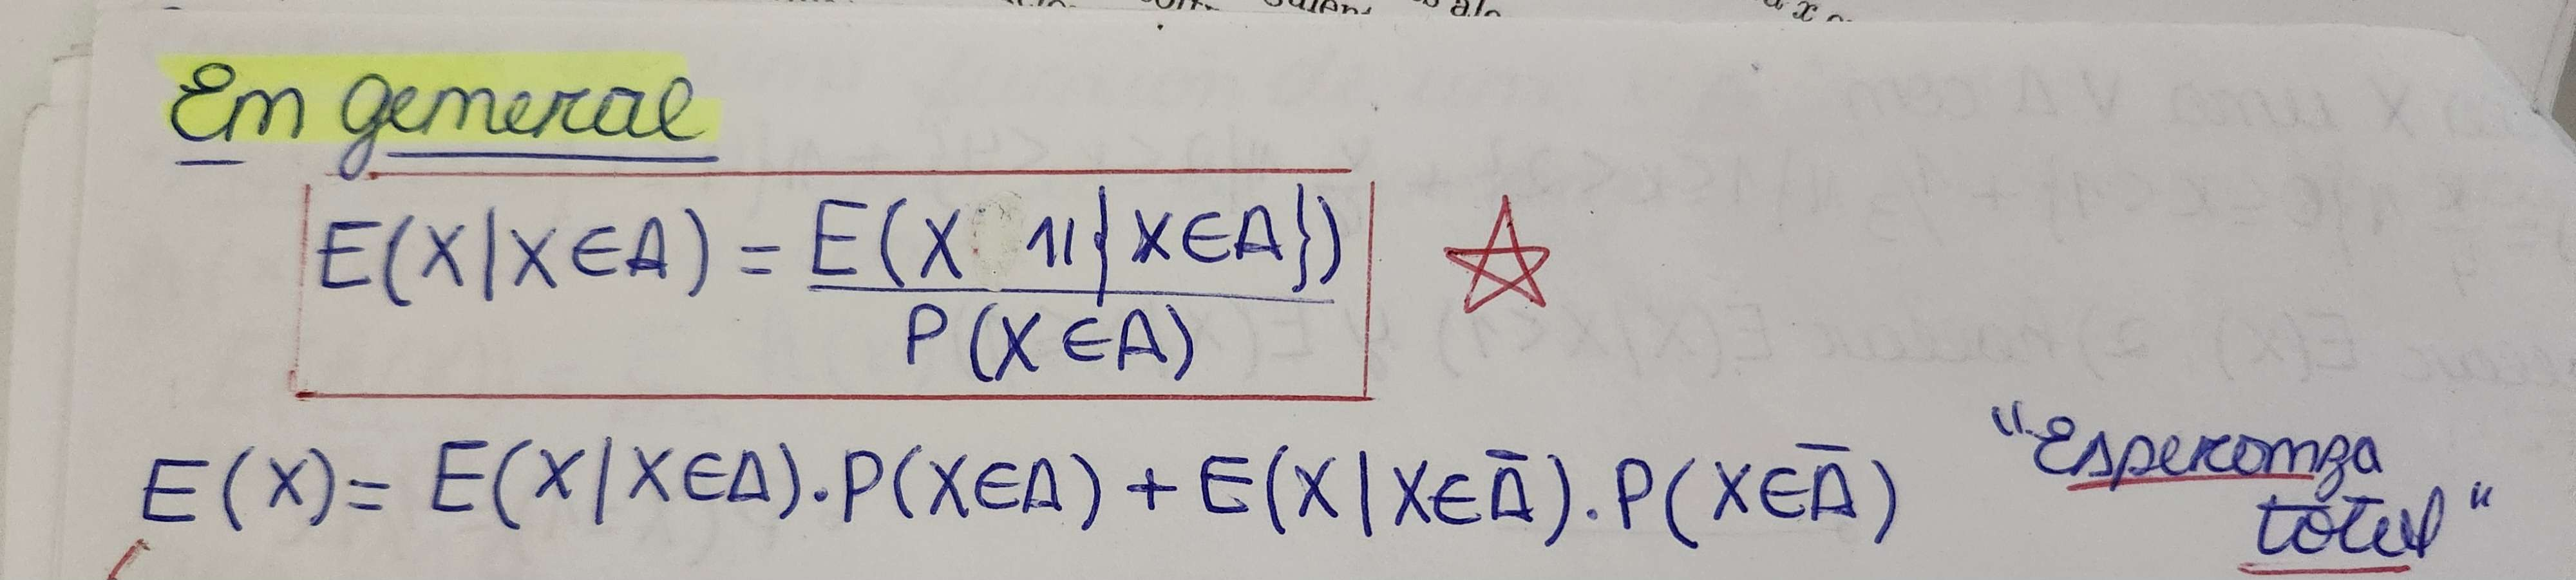 En general
E(X/X∈A) = E(X 𝟙{X∈A})
P(X∈A)
E(X) = E(X/X∈A).P(X∈A) + E(X|X∈A̅).P(X∈A̅)
"Esperanza
total"